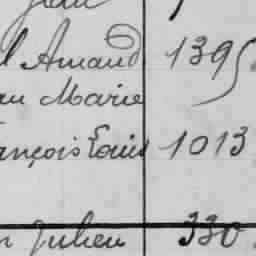 Jean
l Amand 1395
au Marie
ançois Louis 1013
n Julien 330